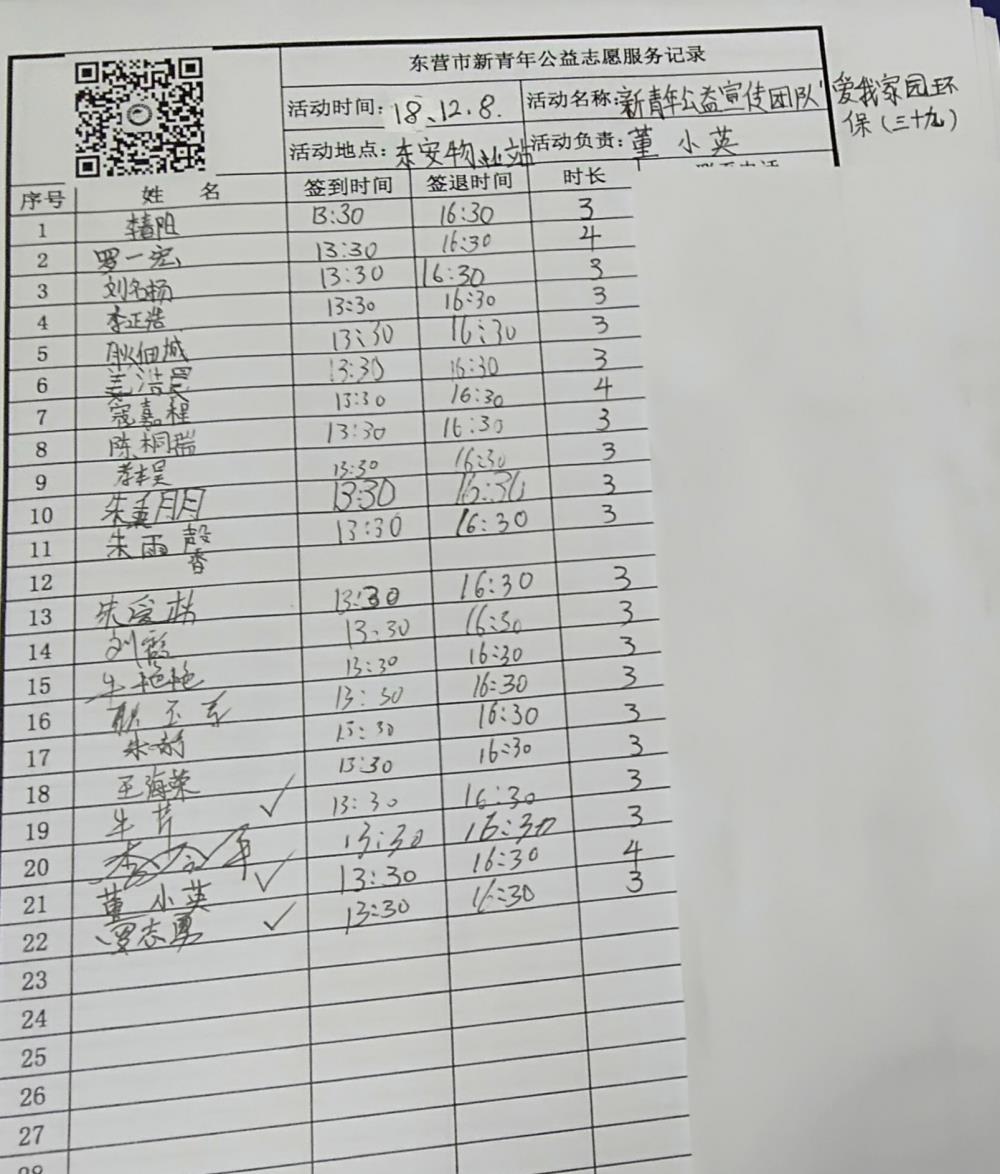 东营市新青年公益志愿服务记录
活动时间: 18.12.8. 活动名称: 新青年公益宣传团队"爱我家园环
保(三十九)
活动地点: 东安物业站 活动负责: 董小英
序号 姓 名 签到时间 签退时间 时长
1 13:30 16:30 3
2 罗一宏 13:30 16:30 4
3 刘名杨 13:30 16:30 3
4 李正浩 13:30 16:30 3
5 耿佃城 13:30 16:30 3
6 姜浩晨 13:30 16:30 3
7 寇嘉程 13:30 16:30 4
8 陈桐瑞 13:30 16:30 3
9 13:30 16:30 3
10 13:30 16:30 3
11 朱雨馨 13:30 16:30 3
12
13 朱爱林 13:30 16:30 3
14 刘霞 13:30 16:30 3
15 牛艳艳 13:30 16:30 3
16 耿玉东 13:30 16:30 3
17 13:30 16:30 3
18 王海荣 13:30 16:30 3
19 牛芹 ✓ 13:30 16:30 3
20 13:30 16:30 3
21 董小英 ✓ 13:30 16:30 4
22 罗志勇 ✓ 13:30 16:30 3
23
24
25
26
27